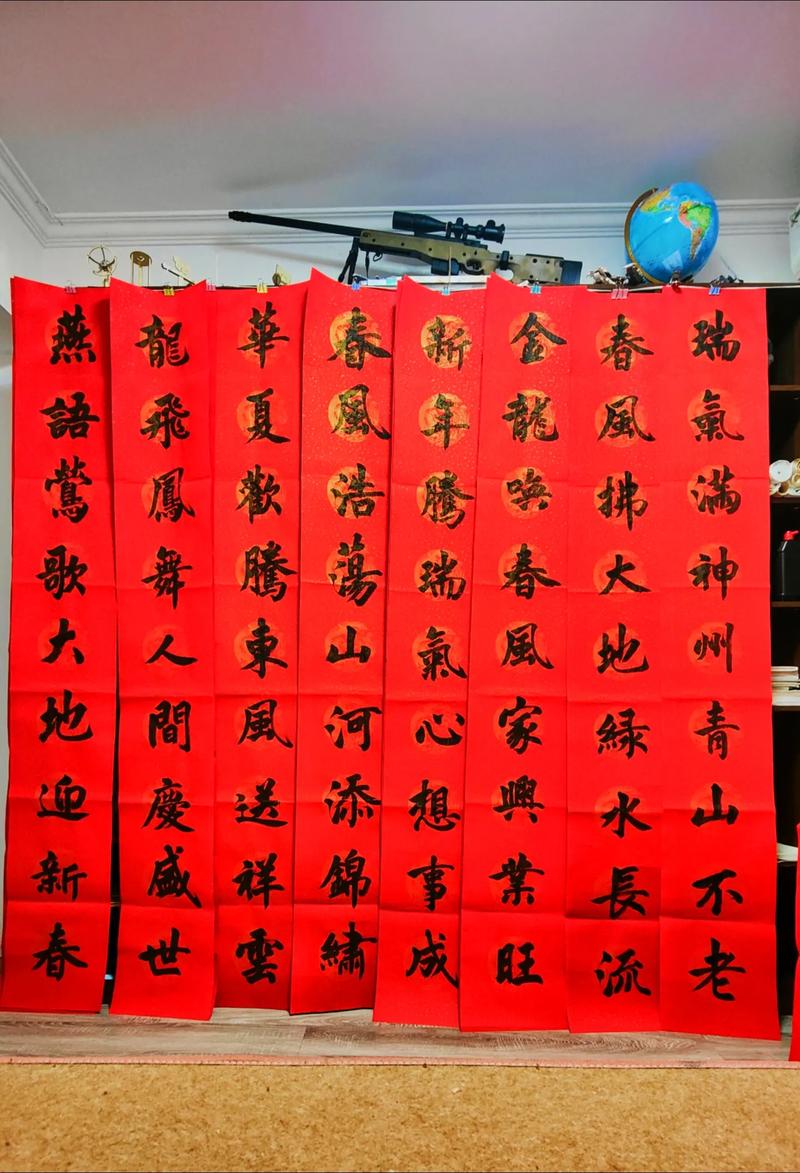 瑞氣滿神州青山不老
春風拂大地緑水長流
金龍喚春風家興業旺
新年騰瑞氣心想事成
春風浩蕩山河添錦繡
華夏歡騰東風送祥雲
龍飛鳳舞人間慶盛世
燕語鶯歌大地迎新春